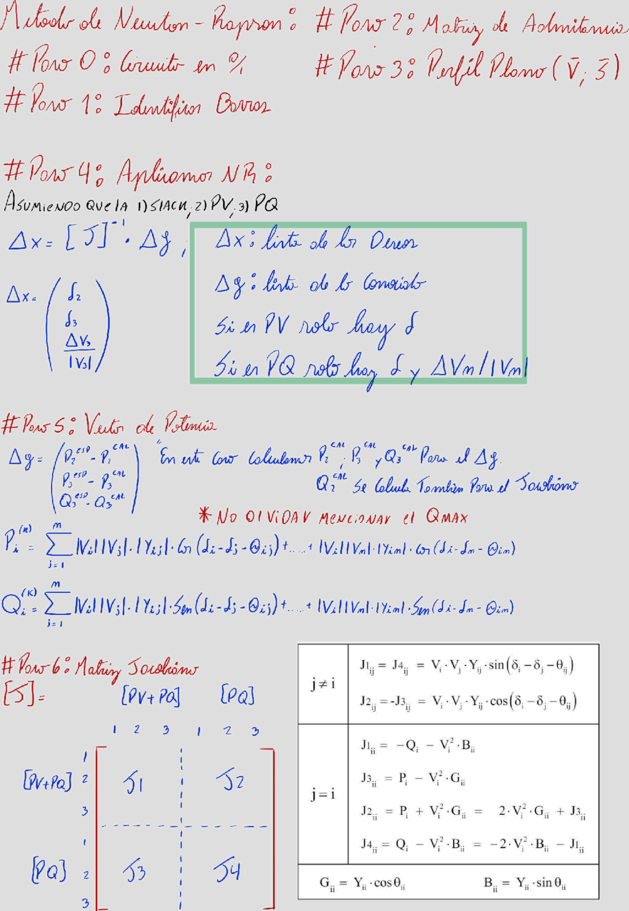 Metodo de Newton-Rapson:
# Paso 0: Circuito en %
# Paso 1: Identificar Barras
# Paso 2: Matriz de Admitancia
# Paso 3: Perfil Plano (V̄; δ̄)
# Paso 4: Aplicamos NR:
ASUMIENDO QUE LA 1) SLACK; 2) PV; 3) PQ
Δx = [J]⁻¹ · Δg ;
Δx = (δ₂
δ₃
ΔV₃/|V₃|)
Δx: lista de los Deseos
Δg: lista de lo Conocido
Si es PV solo hay δ
Si es PQ solo hay δ y ΔVn/|Vn|
# Paso 5: Vector de Potencia
Δg = (P₂ᵉˢᵖ - P₂ᶜᴬᴸ
P₃ᵉˢᵖ - P₃ᶜᴬᴸ
Q₃ᵉˢᵖ - Q₃ᶜᴬᴸ)
"En este caso calculamos P₂ᶜᴬᴸ; P₃ᶜᴬᴸ y Q₃ᶜᴬᴸ Para el Δg.
Q₂ᶜᴬᴸ Se Calcula Tambien Para el Jacobiano
* NO OLVIDAR MENCIONAR el QMAX
Pᵢ⁽ᴷ⁾ = Σ j=1 n |Vi||Vj|·|Yij|·Cos(δi-δj-θij)+.....+|Vi||Vn|·|Yin|·Cos(δi-δn-θin)
Qᵢ⁽ᴷ⁾ = Σ j=1 n |Vi||Vj|·|Yij|·Sen(δi-δj-θij)+.....+|Vi||Vn|·|Yin|·Sen(δi-δn-θin)
# Paso 6: Matriz Jacobiano
[J]= [PV+PQ] [PQ]
1 2 3 1 2 3
[PV+PQ] 1 2 3 J1 J2
[PQ] 1 2 3 J3 J4
j ≠ i
J1ij = J4ij = Vi·Vj·Yij·sin(δi−δj−θij)
J2ij = -J3ij = Vi·Vj·Yij·cos(δi−δj−θij)
j = i
J1ii = −Qi − Vi²·Bii
J3ii = Pi − Vi²·Gii
J2ii = Pi + Vi²·Gii = 2·Vi²·Gii + J3ii
J4ii = Qi − Vi²·Bii = −2·Vi²·Bii − J1ii
Gii = Yii·cosθii Bii = Yii·sinθii